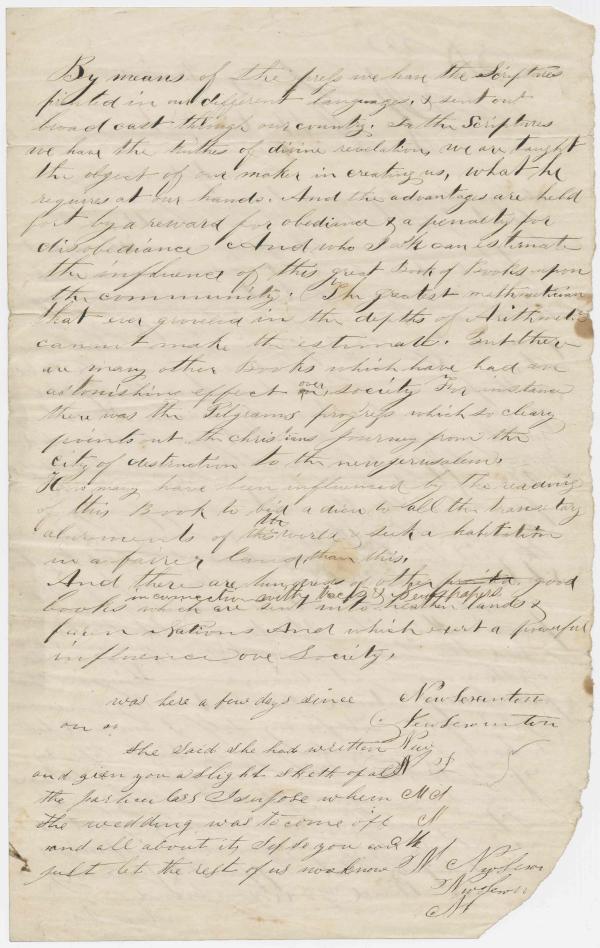 By means of the press we have the Scriptures
printed in our different languages, & sent out
broad cast through our country. In the Scriptures
we have the truthes of divine revelation, we are taught
the object of our maker in creating us, what he
requires at our hands. And the advantages are held
fort by a reward for obediance & a penalty for
disobediance And who I ask can estemate
the influence of this great Book of Books upon
the community. The greatest mathematician
that ever groweed in the depths of Arithmetic
cannot make the estimate. But there
are many other Books which have had an
astonishing effect over society For instance
there was the Pilgrams progress which so cleary
points out the christians Journey from the
city of distruction to the new jerusalem.
How many have been influenced by the reading
of this Book to bid adieu to all the transetary
alurements of this world & seek a habitation
in a fairer land than this.
And there are hundreds of other good
in connection with Tracts & Newspapers
books which are sent into heathen lands &
foren Nations And which exert a powerful
influence ove Society.
was here a few days since
on
She said she had written
and given you a slight sketh of all
the particulars I supose when
the wedding was to come off
and all about it, If so you will
just let the rest of us now know
New Scranton
New Scranton
New
N
M
N
N New Scran
New Scran
N